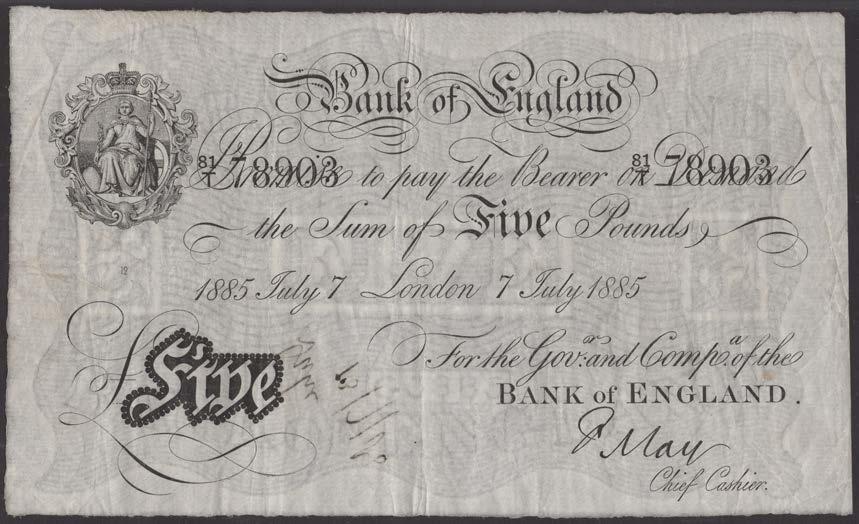 Bank of England
81/T 78903 81/T 78903
I Promise to pay the Bearer on Demand
the Sum of Five Pounds
12
1885 July 7 London 7 July 1885
£ Five
For the Govr. and Compa. of the
BANK of ENGLAND.
F May
Chief Cashier.